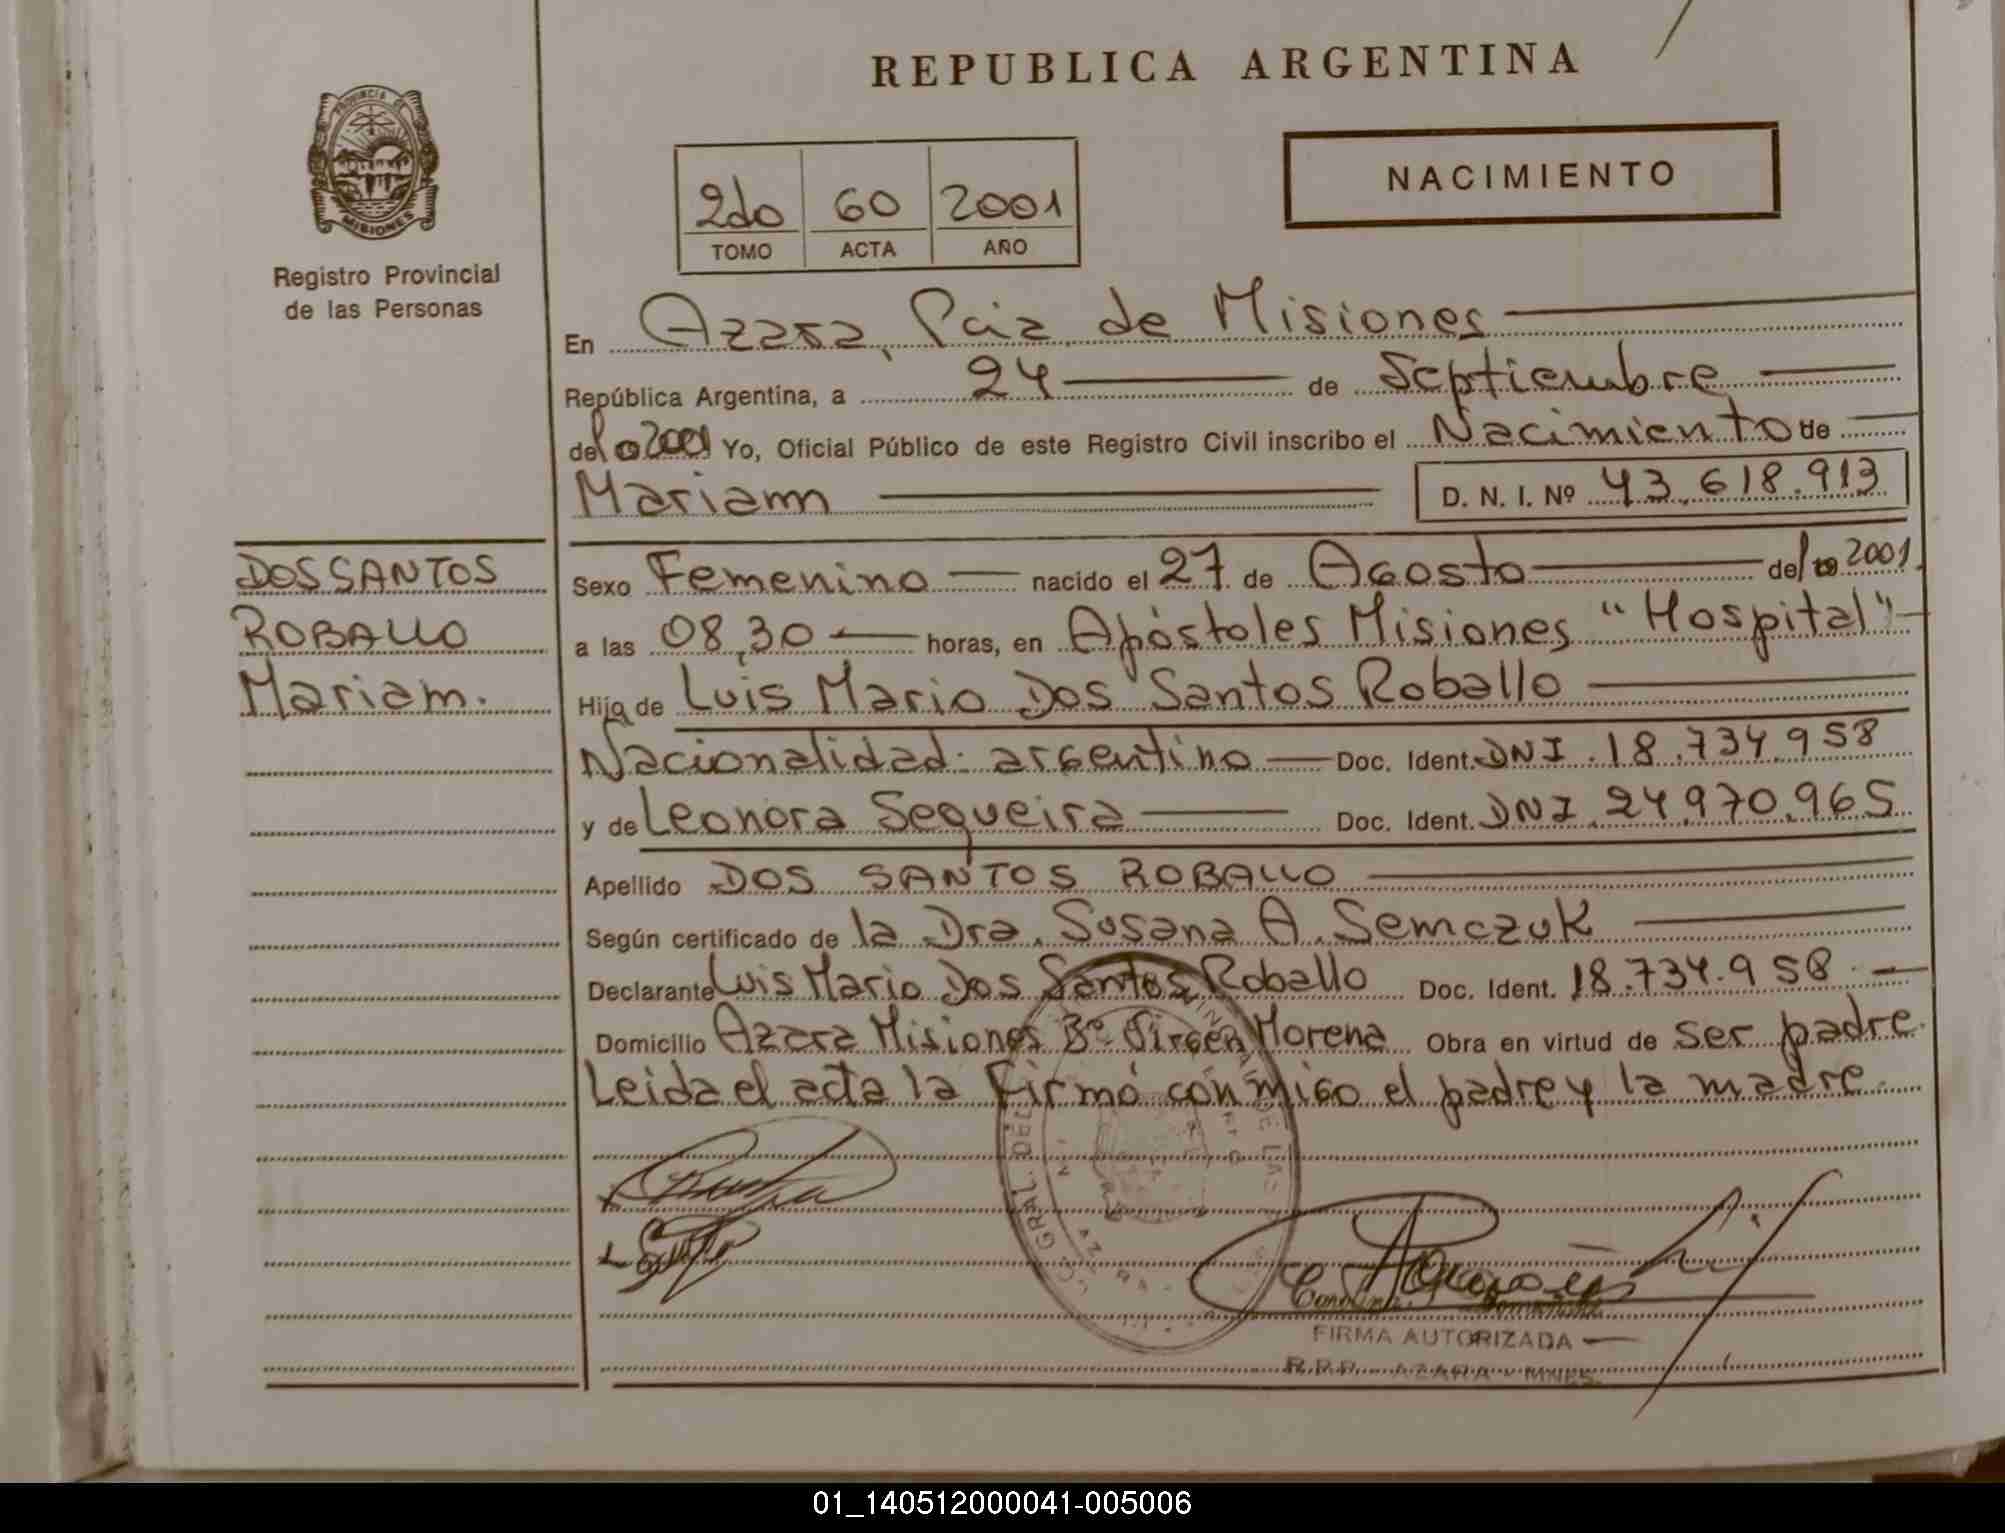 REPUBLICA ARGENTINA
PROVINCIA DE
MISIONES
Registro Provincial
de las Personas
2do 60 2001
TOMO ACTA AÑO
NACIMIENTO
En Azara, Pcia de Misiones
República Argentina, a 24 de Septiembre
del 2001 Yo, Oficial Público de este Registro Civil inscribo el Nacimiento de
Mariam D. N. I. Nº 43.618.913
DOS SANTOS
ROBALLO
Mariam.
Sexo Femenino nacido el 27 de Agosto del 2001
a las 08,30 horas, en Apóstoles Misiones "Hospital"
Hija de Luis Mario Dos Santos Roballo
Nacionalidad: argentino Doc. Ident. DNI. 18.734.958
y de Leonora Sequeira Doc. Ident. DNI. 24.970.965
Apellido DOS SANTOS ROBALLO
Según certificado de la Dra. Susana A. Semczuk
Declarante Luis Mario Dos Santos Roballo Doc. Ident. 18.734.958
Domicilio Azara Misiones Bº Virgen Morena Obra en virtud de ser padre
Leida el acta la firmó conmigo el padre y la madre
FIRMA AUTORIZADA
R.P.P. - AZARA - MNES.
01_140512000041-005006